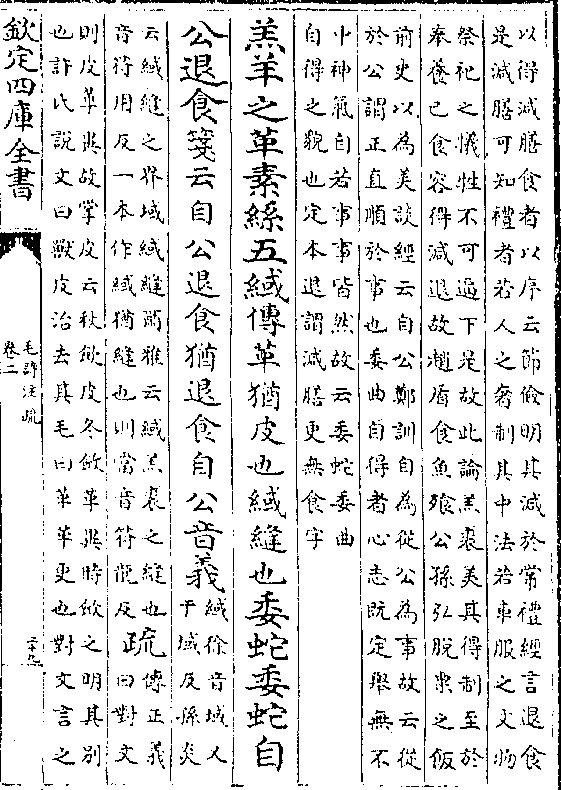 以得減膳食者以序云節儉明其減於常禮經言退食
是減膳可知禮者苦人之奢制其中法若車服之文物
祭祀之犧牲不可逼下是故此論羔裘美其得制至於
奉養已食容得減退故趙盾食魚飱公孫弘脫粟之飯
前史以為美談經云自公鄭訓自為從公為事故云從
於公謂正直順於事也委曲自得者心志既定舉無不
中神氣自若事事皆然故云委蛇委曲
自得之貌也定本退謂減膳更無食字
羔羊之革素絲五緎傳革猶皮也緎縫也委蛇委蛇自
公退食箋云自公退食猶退食自公音義
緎徐音域又
于域反孫炎
云緎縫之界域緎縫爾雅云緎羔裘之縫也
音符用反一本作緎猶縫也則當音符龍反
疏
傳正義
曰對文
則皮革異故掌皮云秋斂皮冬斂革異時斂之明其別
也許氏說文曰獸皮治去其毛曰革革更也對文言之
欽定四庫全書
毛詩注疏
卷二
二十九